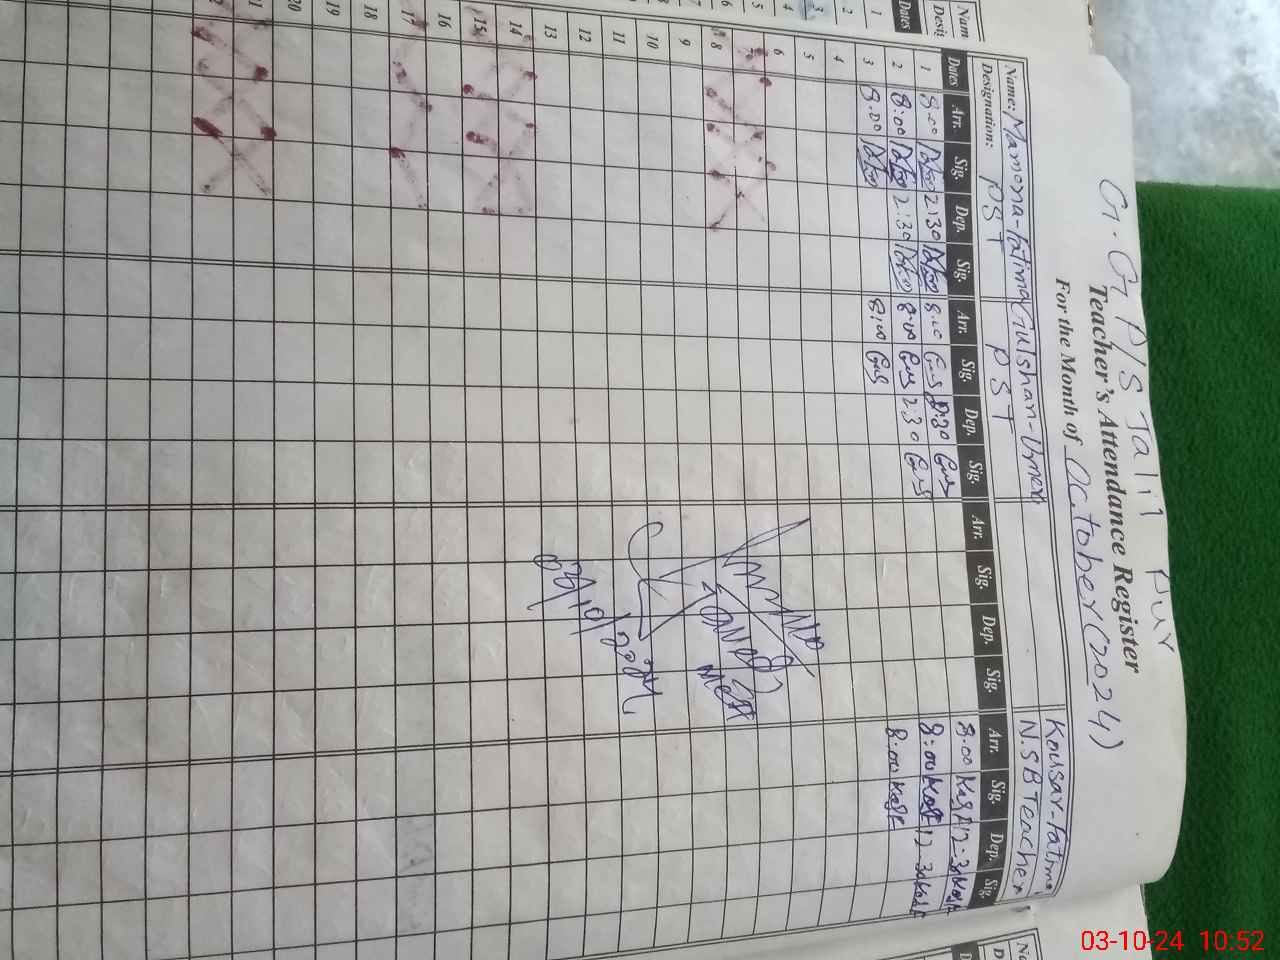 G.G.P/S Jalil pur
Teacher's Attendance Register
For the Month of October (2024)
Name: Mamona-Fatima Gulshan-Umer Kousar-Fatima
Designation: PST PST N.S.B Teacher
Dates Arr. Sig. Dep. Sig. Arr. Sig. Dep. Sig. Arr. Sig. Dep. Sig. Arr. Sig. Dep. Sig.
1 8:00 2:30 8:00 Gus 2:30 Gus 8:00 12-30
2 8:00 2:30 8:00 Gus 2:30 Gus 8:00 12-30
3 8:00 8:00 Gus 8:00
4
5
6
7
8
9
10
11
12
13
14
15
16
17
18
19
20
03/10/2024
Dates
1
2
3
4
5
6
03-10-24 10:52